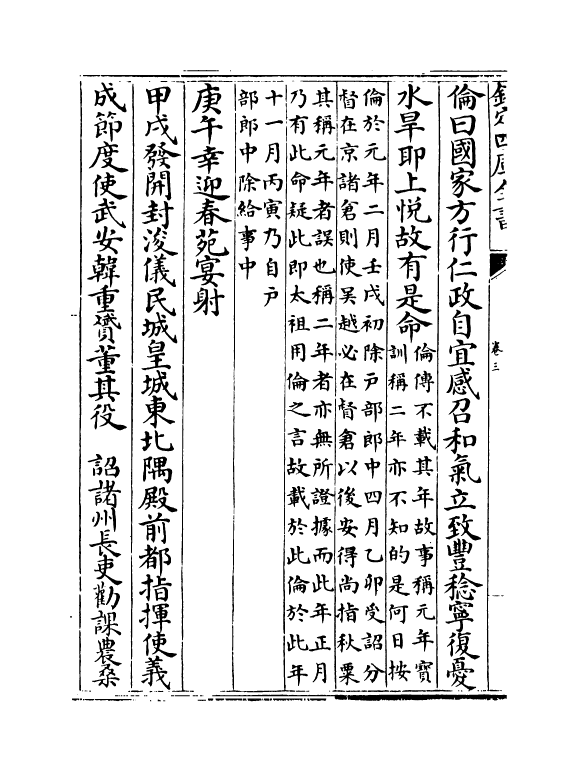 欽定四庫全書
卷三
倫曰國家方行仁政自宜感召和氣立致豐稔寧復憂
水旱耶上悅故有是命
倫傳不載其年故事稱元年寶
訓稱二年亦不知的是何日按
倫於元年二月壬戌初除戸部郎中四月乙卯受詔分
督在京諸倉則使吴越必在督倉以後安得尚指秋粟
其稱元年者誤也稱二年者亦無所證據而此年正月
乃有此命疑此即太祖用倫之言故載於此倫於此年
十一月丙寅乃自戸
部郎中除給事中
庚午幸迎春苑宴射
甲戌發開封浚儀民城皇城東北隅殿前都指揮使義
成節度使武安韓重贇董其役　詔諸州長吏勸課農桑